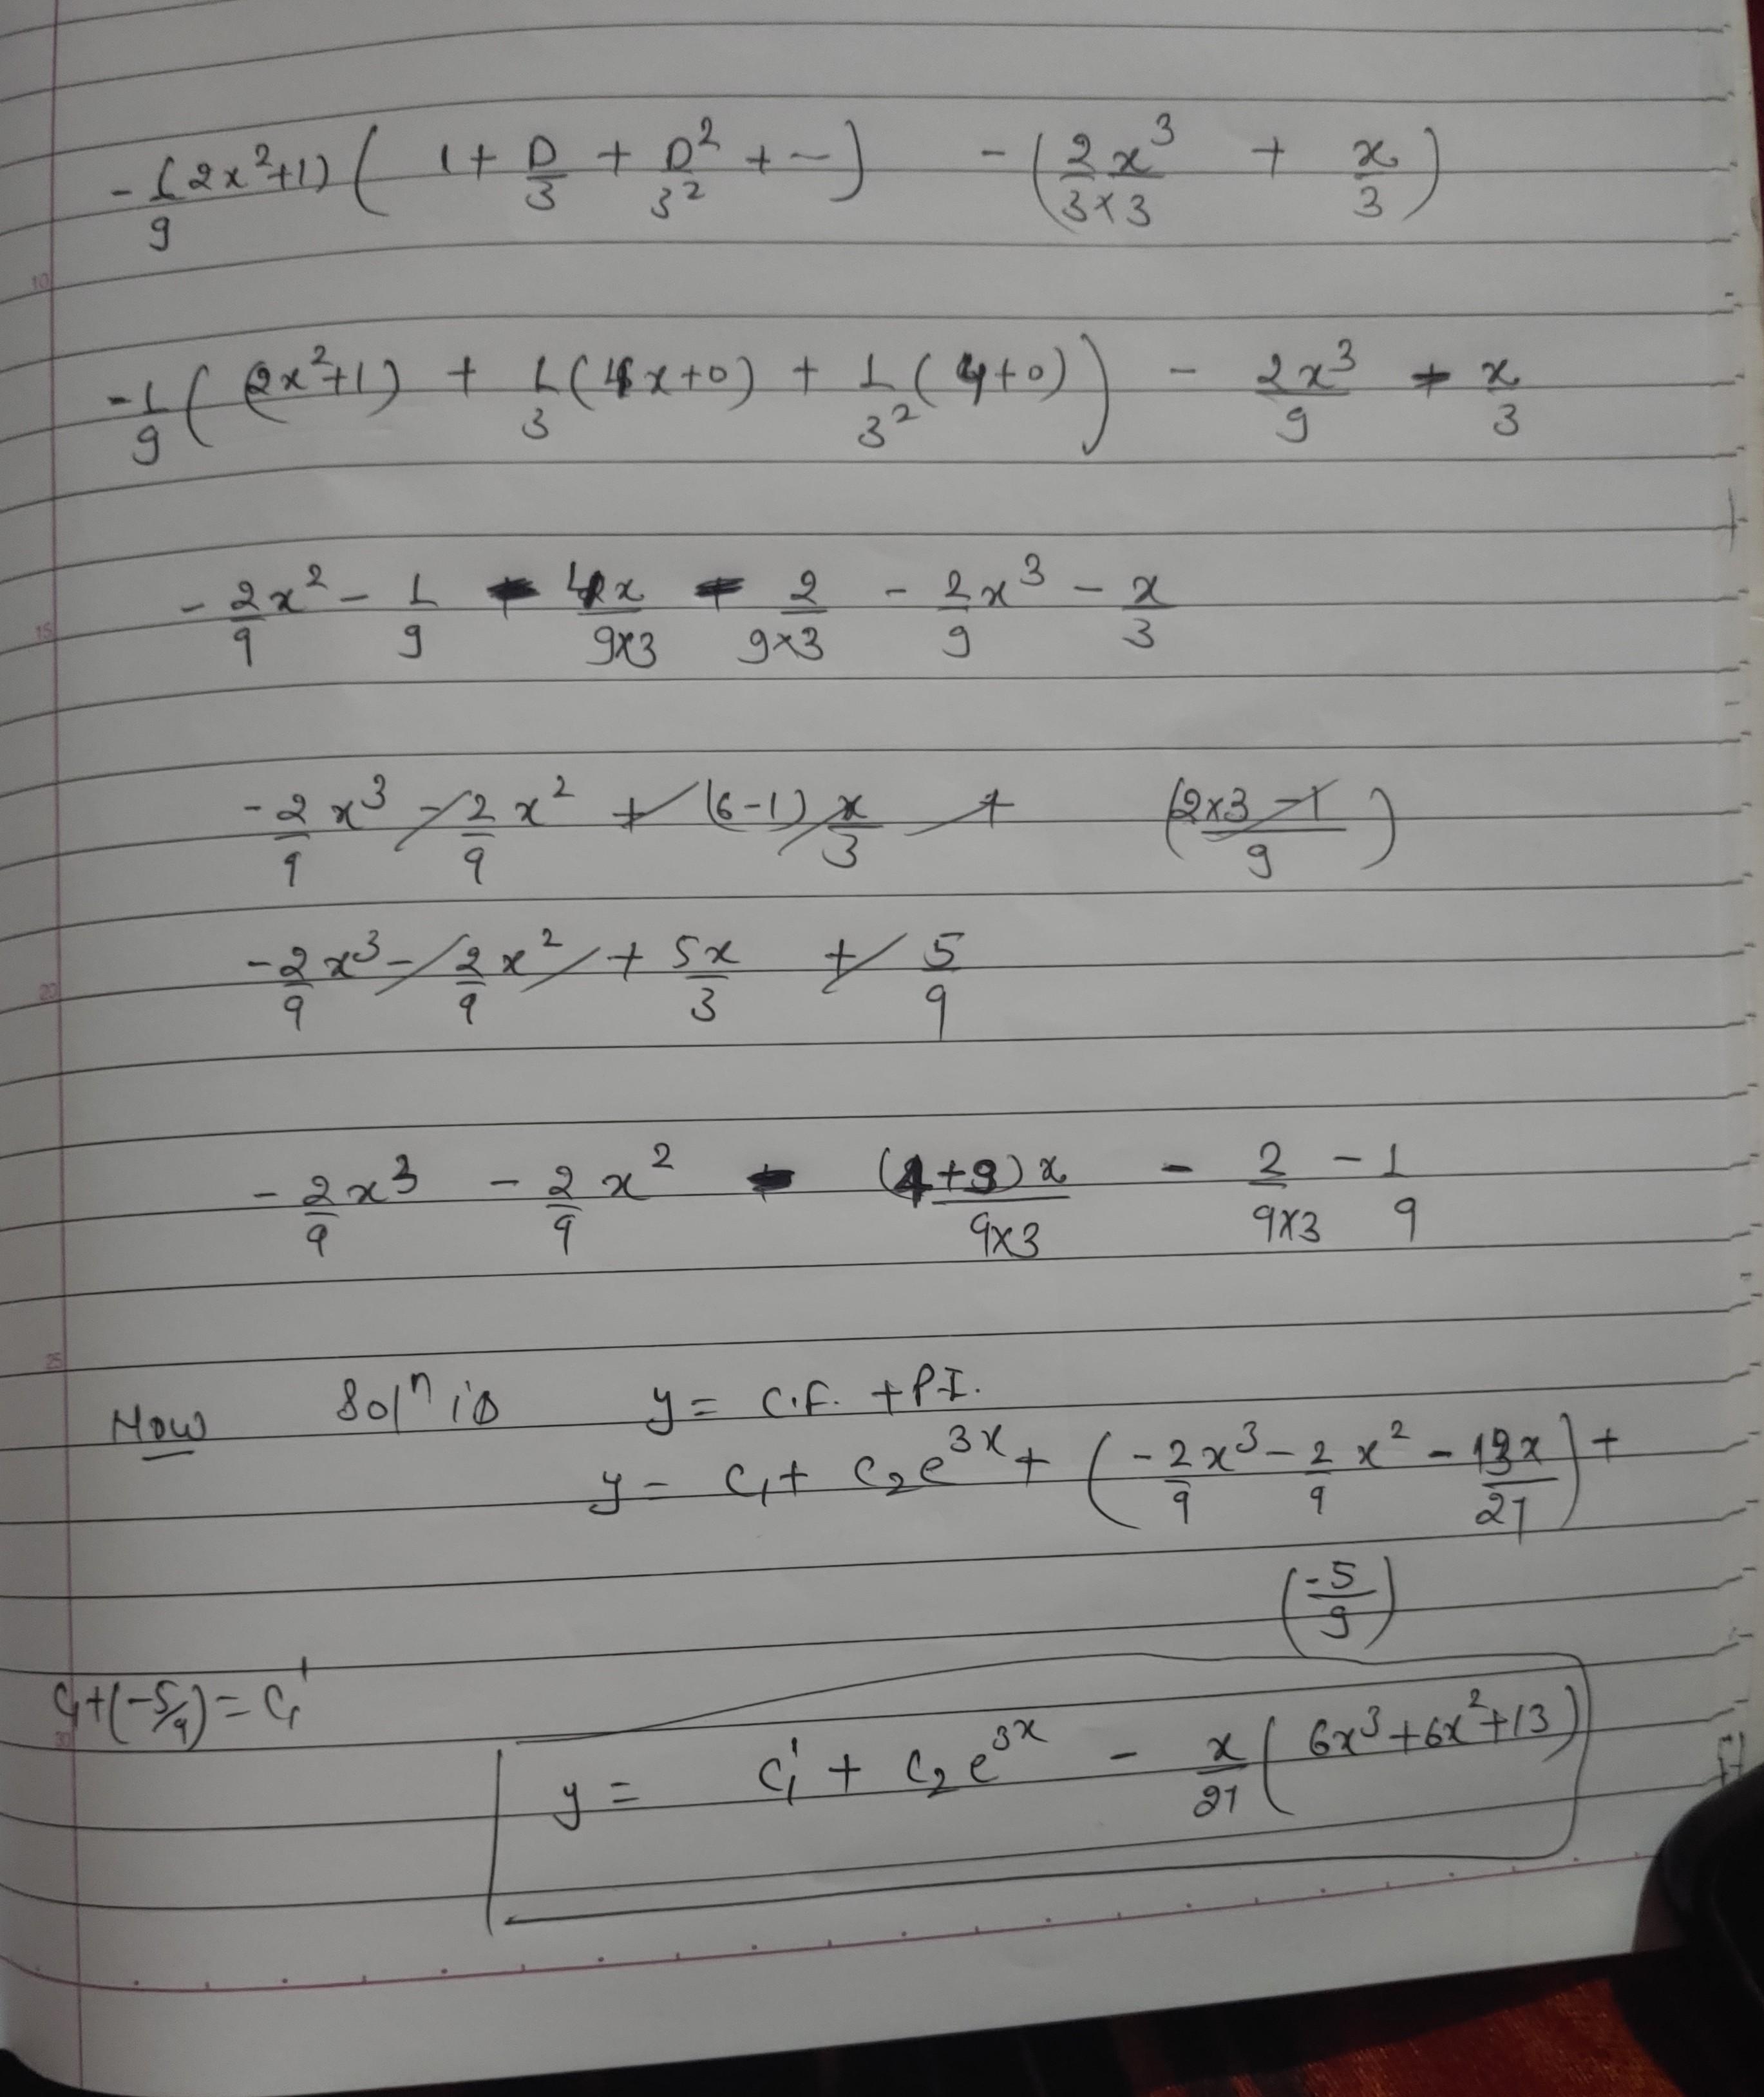 -1/9 (2x²+1) ( 1 + D/3 + D²/3² + --) - ( 2x³/3×3 + x/3 )
10
-1/9 ( (2x²+1) + 1/3 (4x+0) + 1/3² (4+0) ) - 2x³/9 - x/3
15
- 2x²/9 - 1/9 - 4x/9×3 - 2/9×3 - 2x³/9 - x/3
-2/9 x³ - 2/9 x² + (6-1) x/3 + (2×3-1/9)
20
-2/9 x³ - 2/9 x² + 5x/3 + 5/9
-2/9 x³ - 2/9 x² - (4+9)x/9×3 - 2/9×3 - 1/9
25
Now Solⁿ is y = C.F. + P.I.
y = C₁ + C₂e³ˣ + ( -2x³/9 - 2/9 x² - 13x/27 ) +
(-5/9)
C₁+(-5/9) = C₁'
30
y = C₁' + C₂e³ˣ - x/27 ( 6x³+6x²+13 )